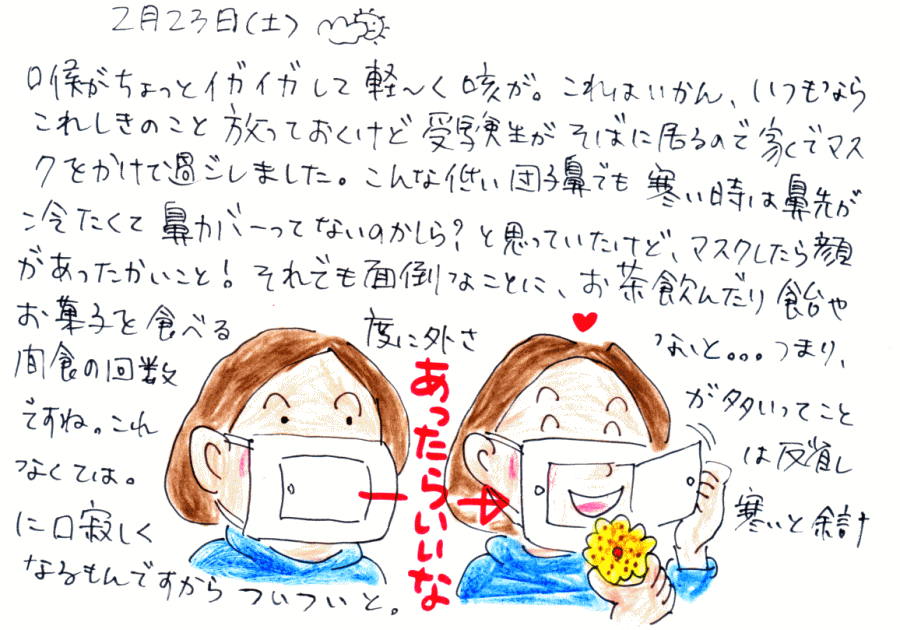 2月23日(土)
喉がちょっとイガイガして軽〜く咳が。これはいかん、いつもなら
これしきのこと放っておくけど受験生がそばに居るので家でマス
クをかけて過ごしました。こんな低い団子鼻でも寒い時は鼻先が
冷たくて鼻カバーってないのかしら?と思っていたけど、マスクしたら顔
があったかいこと!それでも面倒なことに、お茶飲んだり飴や
お菓子を食べる度に外さないと。。。つまり、
間食の回数が多いってこと
ですね。これは反省し
なくては。寒いと余計
に口寂しく
なるもんですからついついと。
あったらいいな